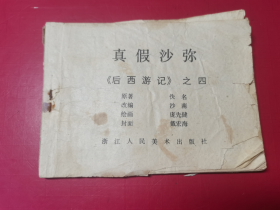 真假沙弥
《后西游记》之四
原著 佚名
改编 沙燕
绘画 唐先健
封面 戴宏海
浙江人民美术出版社